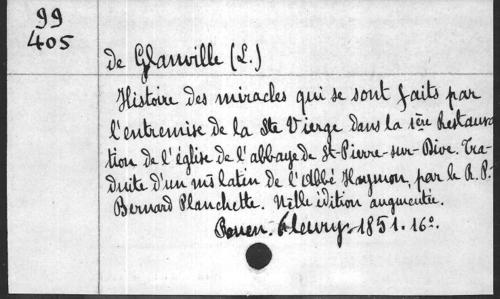 99
405
de Glanville (L.)
Histoire des miracles qui se sont faits par
l'entremise de la Ste Vierge dans la 1ère Restaura
tion de l'église de l'abbaye de St-Pierre-sur-Dive. Tra-
duite d'un ms latin de l'Abbé Haymon, par le R. P.
Bernard Planchette. Nlle édition augmentée.
Rouen. Fleury. 1851. 16º.